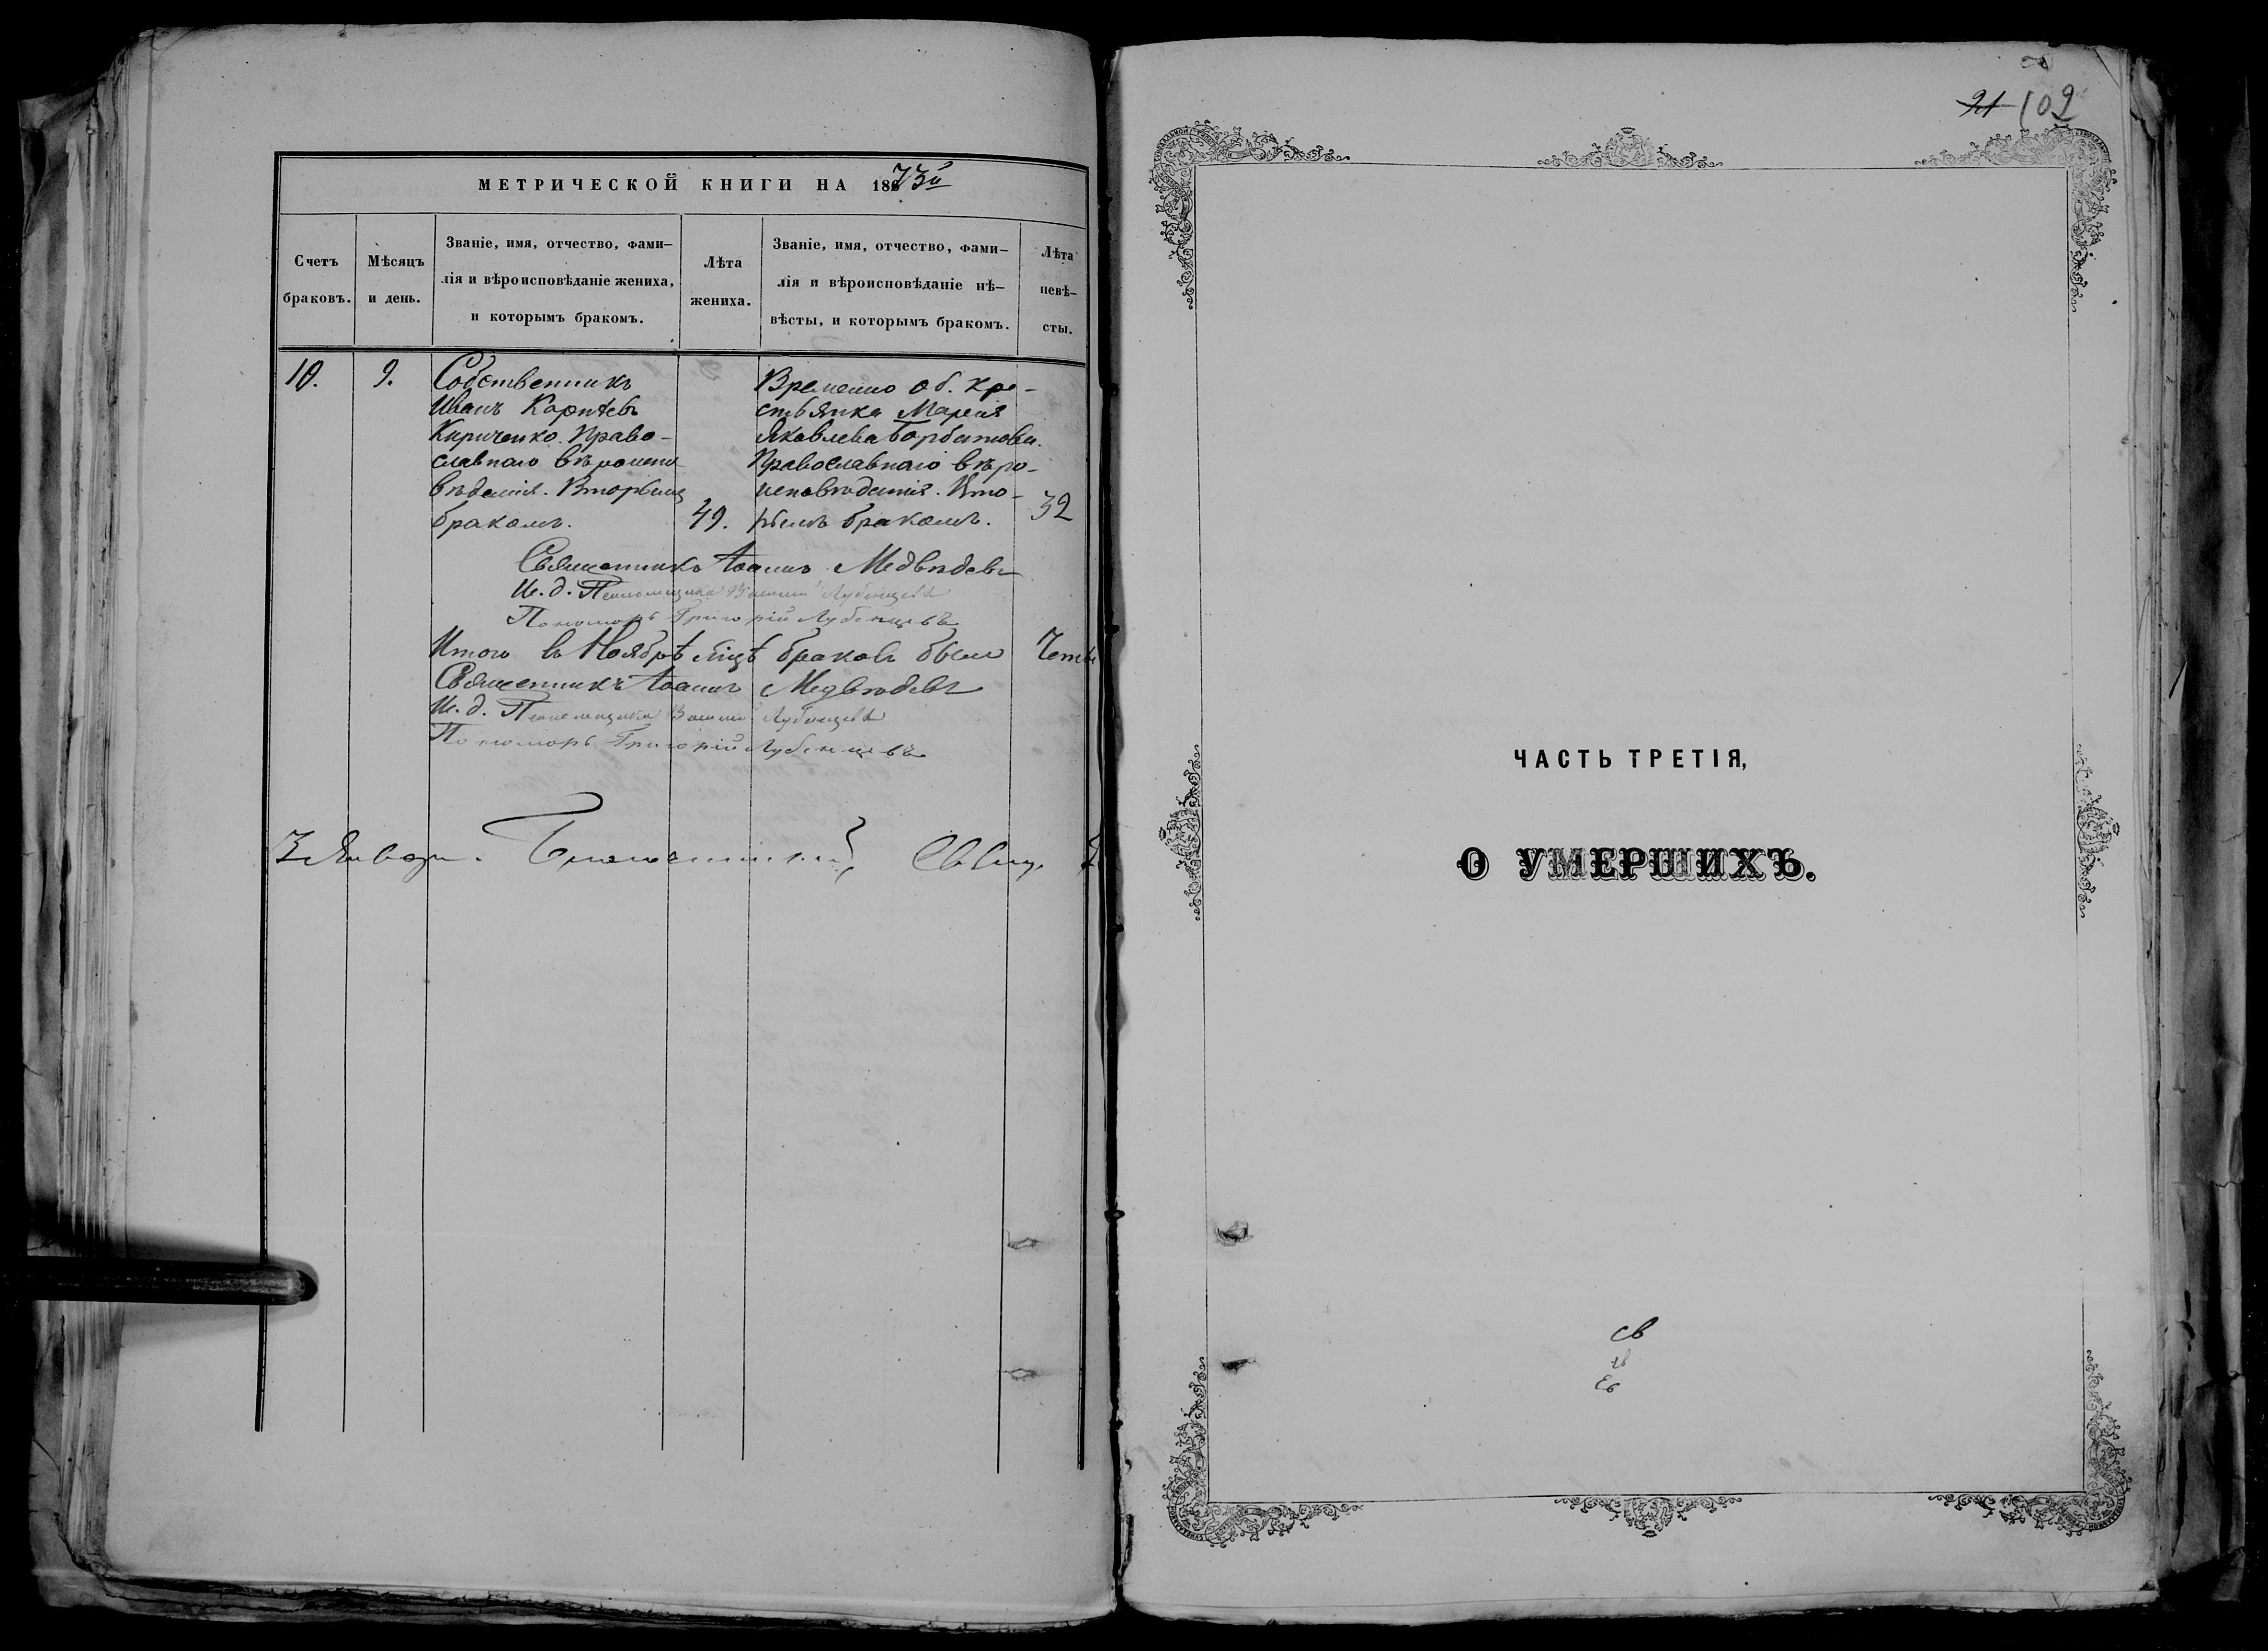 МЕТРИЧЕСКОЙ КНИГИ НА 1873й
Счетъ браковъ.
Мѣсяцъ и день.
Званіе, имя, отчество, фами-
лія и вѣроисповѣданіе жениха,
и которымъ бракомъ.
Лѣта жениха.
Званіе, имя, отчество, фами-
лія и вѣроисповѣданіе нѣ-
вѣсты, и которымъ бракомъ.
Лѣта невѣ-
сты.
10. 9.
Собственникъ
Иванъ Карпѣевъ
Кириченко. Право-
славнаго вѣроиспо
вѣданія. Вторымъ
бракомъ. 49.
Временно об. кре-
стьянка Марѳія
Яковлева Горбатова.
Православнаго вѣро-
исповѣданія. Вто-
рымъ бракомъ. 32
Священникъ Іоаннъ Медвѣдевъ
И. д. Псаломщика Лубенцевъ
Пономарь Григорій Лубенцевъ
Итого въ Ноябрѣ мцѣ браковъ было Четы
Священникъ Іоаннъ Медвѣдевъ
И. д. Псаломщика Лубенцевъ
Пономарь Григорій Лубенцевъ
21 102
ЧАСТЬ ТРЕТІЯ,
О УМЕРШИХЪ.
св